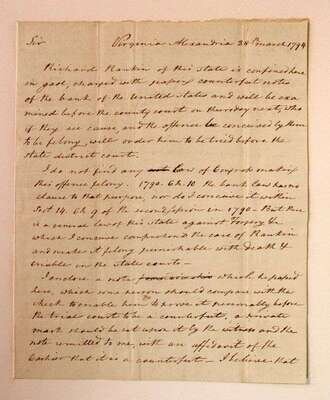 Sir Virginia Alexandria 28th march 1794
Richard Rankin of this State is confined here
in gaol, charged with passing counterfeit notes
of the bank of the United States and will be exa
mined before the county court on thursday next, who
if they see cause, and the offence be conceived by them
to be felony, will order him to be tried before the
state district court.
I do not find any law of Congress making
this offence felony. 1790. Ch. 10 the bank law has no
clause to that purpose, nor do I conceive it within
Sect 14. Ch 9 of the second session in 1790 - But there
is a general law of this state against Forgery &c
which I conceive comprehends the case of Rankin
and makes it felony punishable with death &
triable in the state courts -
I enclose a note which he passed
here, which some person should compare with the
check to enable him to prove it personally before
the trial court to be a counterfeit, a private
mark should be set upon it by the witness and the
note remitted to me, with an affidavit of the
Cashier that it is a counterfeit - I believe that